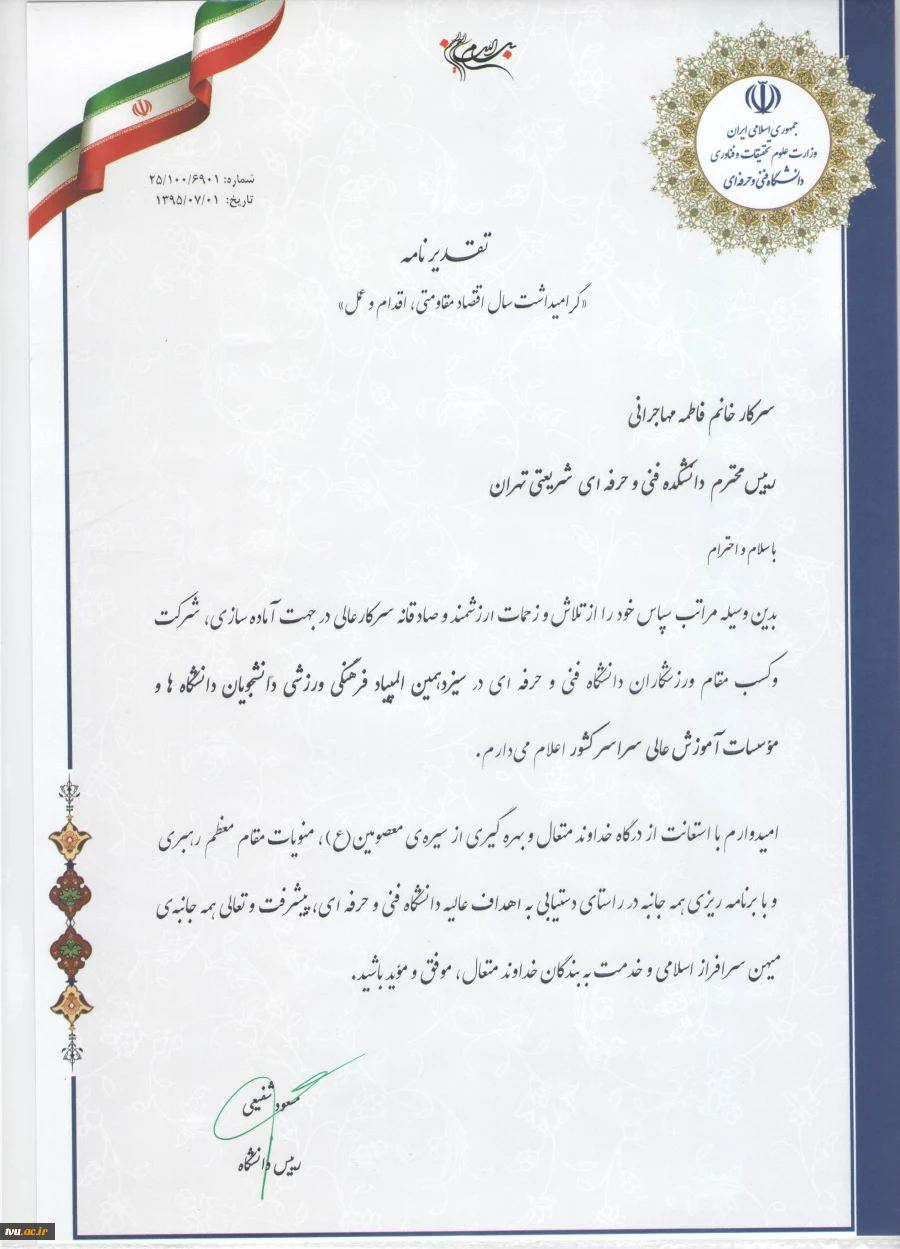 بسم الله الرحمن الرحیم
جمهوری اسلامی ایران
وزارت علوم تحقیقات و فناوری
دانشگاه فنی و حرفه ای
شماره: ۲۵/۱۰۰/۶۹۰۱
تاریخ: ۱۳۹۵/۰۷/۰۱
تقدیرنامه
«گرامیداشت سال اقتصاد مقاومتی، اقدام و عمل»
سرکار خانم فاطمه مهاجرانی
رییس محترم دانشکده فنی و حرفه ای شریعتی تهران
با سلام و احترام
بدین وسیله مراتب سپاس خود را از تلاش و زحمات ارزشمند و صادقانه سرکارعالی در جهت آماده سازی، شرکت
و کسب مقام ورزشکاران دانشگاه فنی و حرفه ای در سیزدهمین المپیاد فرهنگی ورزشی دانشجویان دانشگاه ها و
مؤسسات آموزش عالی سراسر کشور اعلام می دارم.
امیدوارم با استعانت از درگاه خداوند متعال و بهره گیری از سیره ی معصومین(ع)، منویات مقام معظم رهبری
و با برنامه ریزی همه جانبه در راستای دستیابی به اهداف عالیه دانشگاه فنی و حرفه ای، پیشرفت و تعالی همه جانبه ی
میهن سرافراز اسلامی و خدمت به بندگان خداوند متعال، موفق و مؤید باشید.
مسعود شفیعی
رییس دانشگاه
tvu.ac.ir